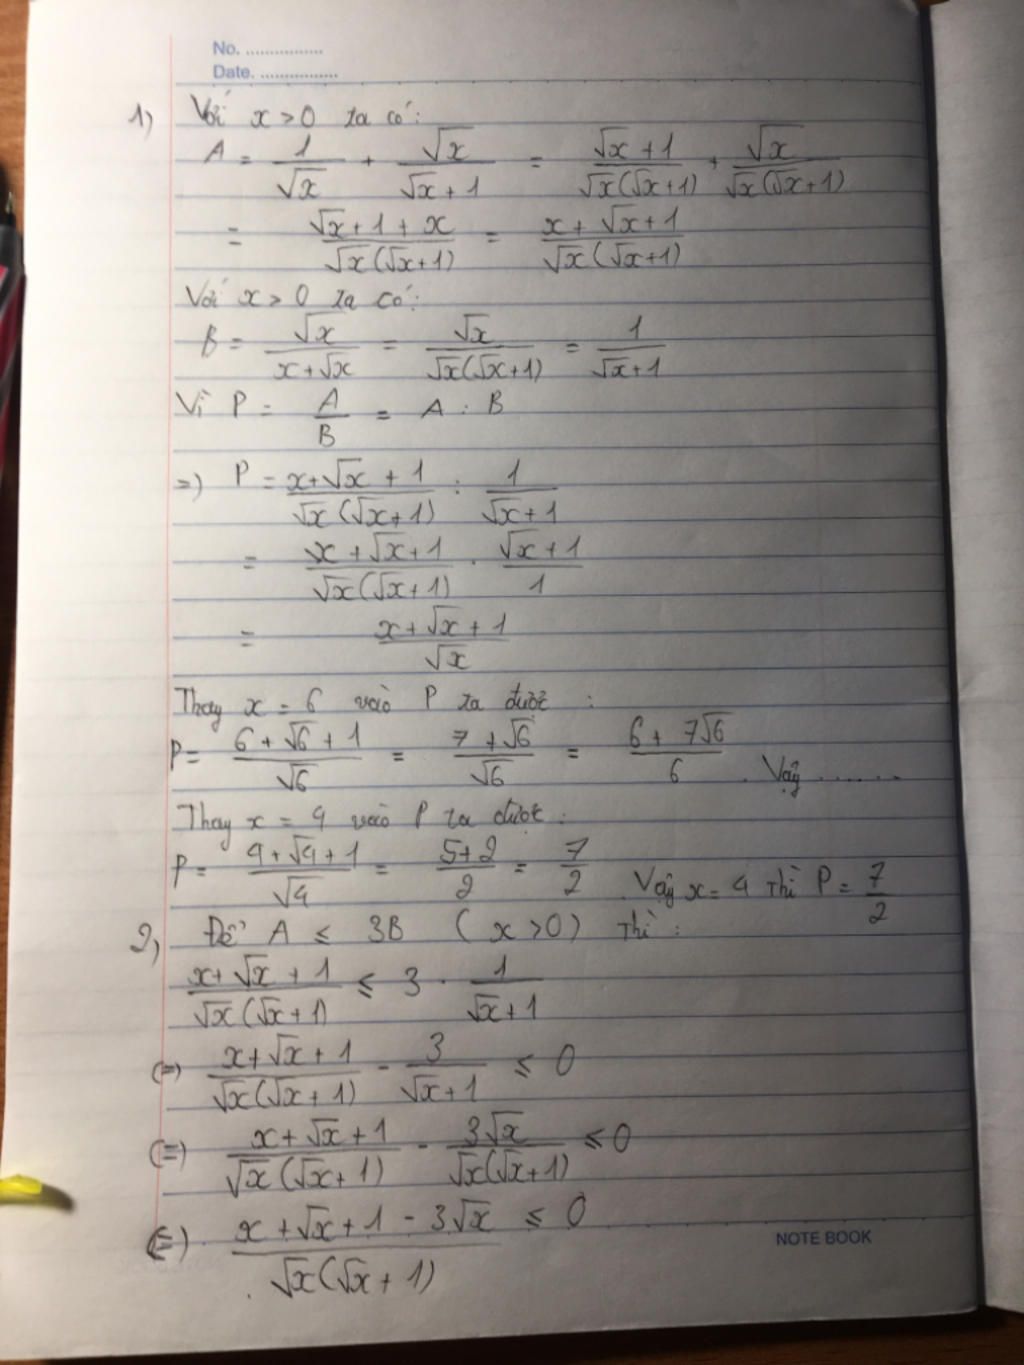 No. ................
Date. ................
1) Với x > 0 ta có:
A = 1/√x + √x/(√x + 1) = (√x + 1)/(√x(√x+1)) + √x/(√x(√x+1))
= (√x + 1 + x)/(√x(√x+1)) = (x + √x + 1)/(√x(√x+1))
Với x > 0 ta có:
B = √x/(x + √x) = √x/(√x(√x+1)) = 1/(√x+1)
Vì P = A/B = A : B
=) P = (x+√x + 1)/(√x(√x+1)) : 1/(√x+1)
= (x + √x + 1)/(√x(√x+1)) . (√x + 1)/1
= (x + √x + 1)/√x
Thay x = 6 vào P ta được :
P = (6 + √6 + 1)/√6 = (7 + √6)/√6 = (6 + 7√6)/6 . Vậy .......
Thay x = 4 vào P ta được :
P = (4 + √4 + 1)/√4 = (5+2)/2 = 7/2 Vậy x = 4 thì P = 7/2
2) Để A ≤ 3B (x > 0) thì :
(x + √x + 1)/(√x(√x+1)) ≤ 3 . 1/(√x+1)
(=) (x + √x + 1)/(√x(√x + 1)) - 3/(√x+1) ≤ 0
(=) (x + √x + 1)/(√x(√x+1)) - 3√x/(√x(√x+1)) ≤ 0
(=) (x + √x + 1 - 3√x)/(√x(√x + 1)) ≤ 0
NOTE BOOK